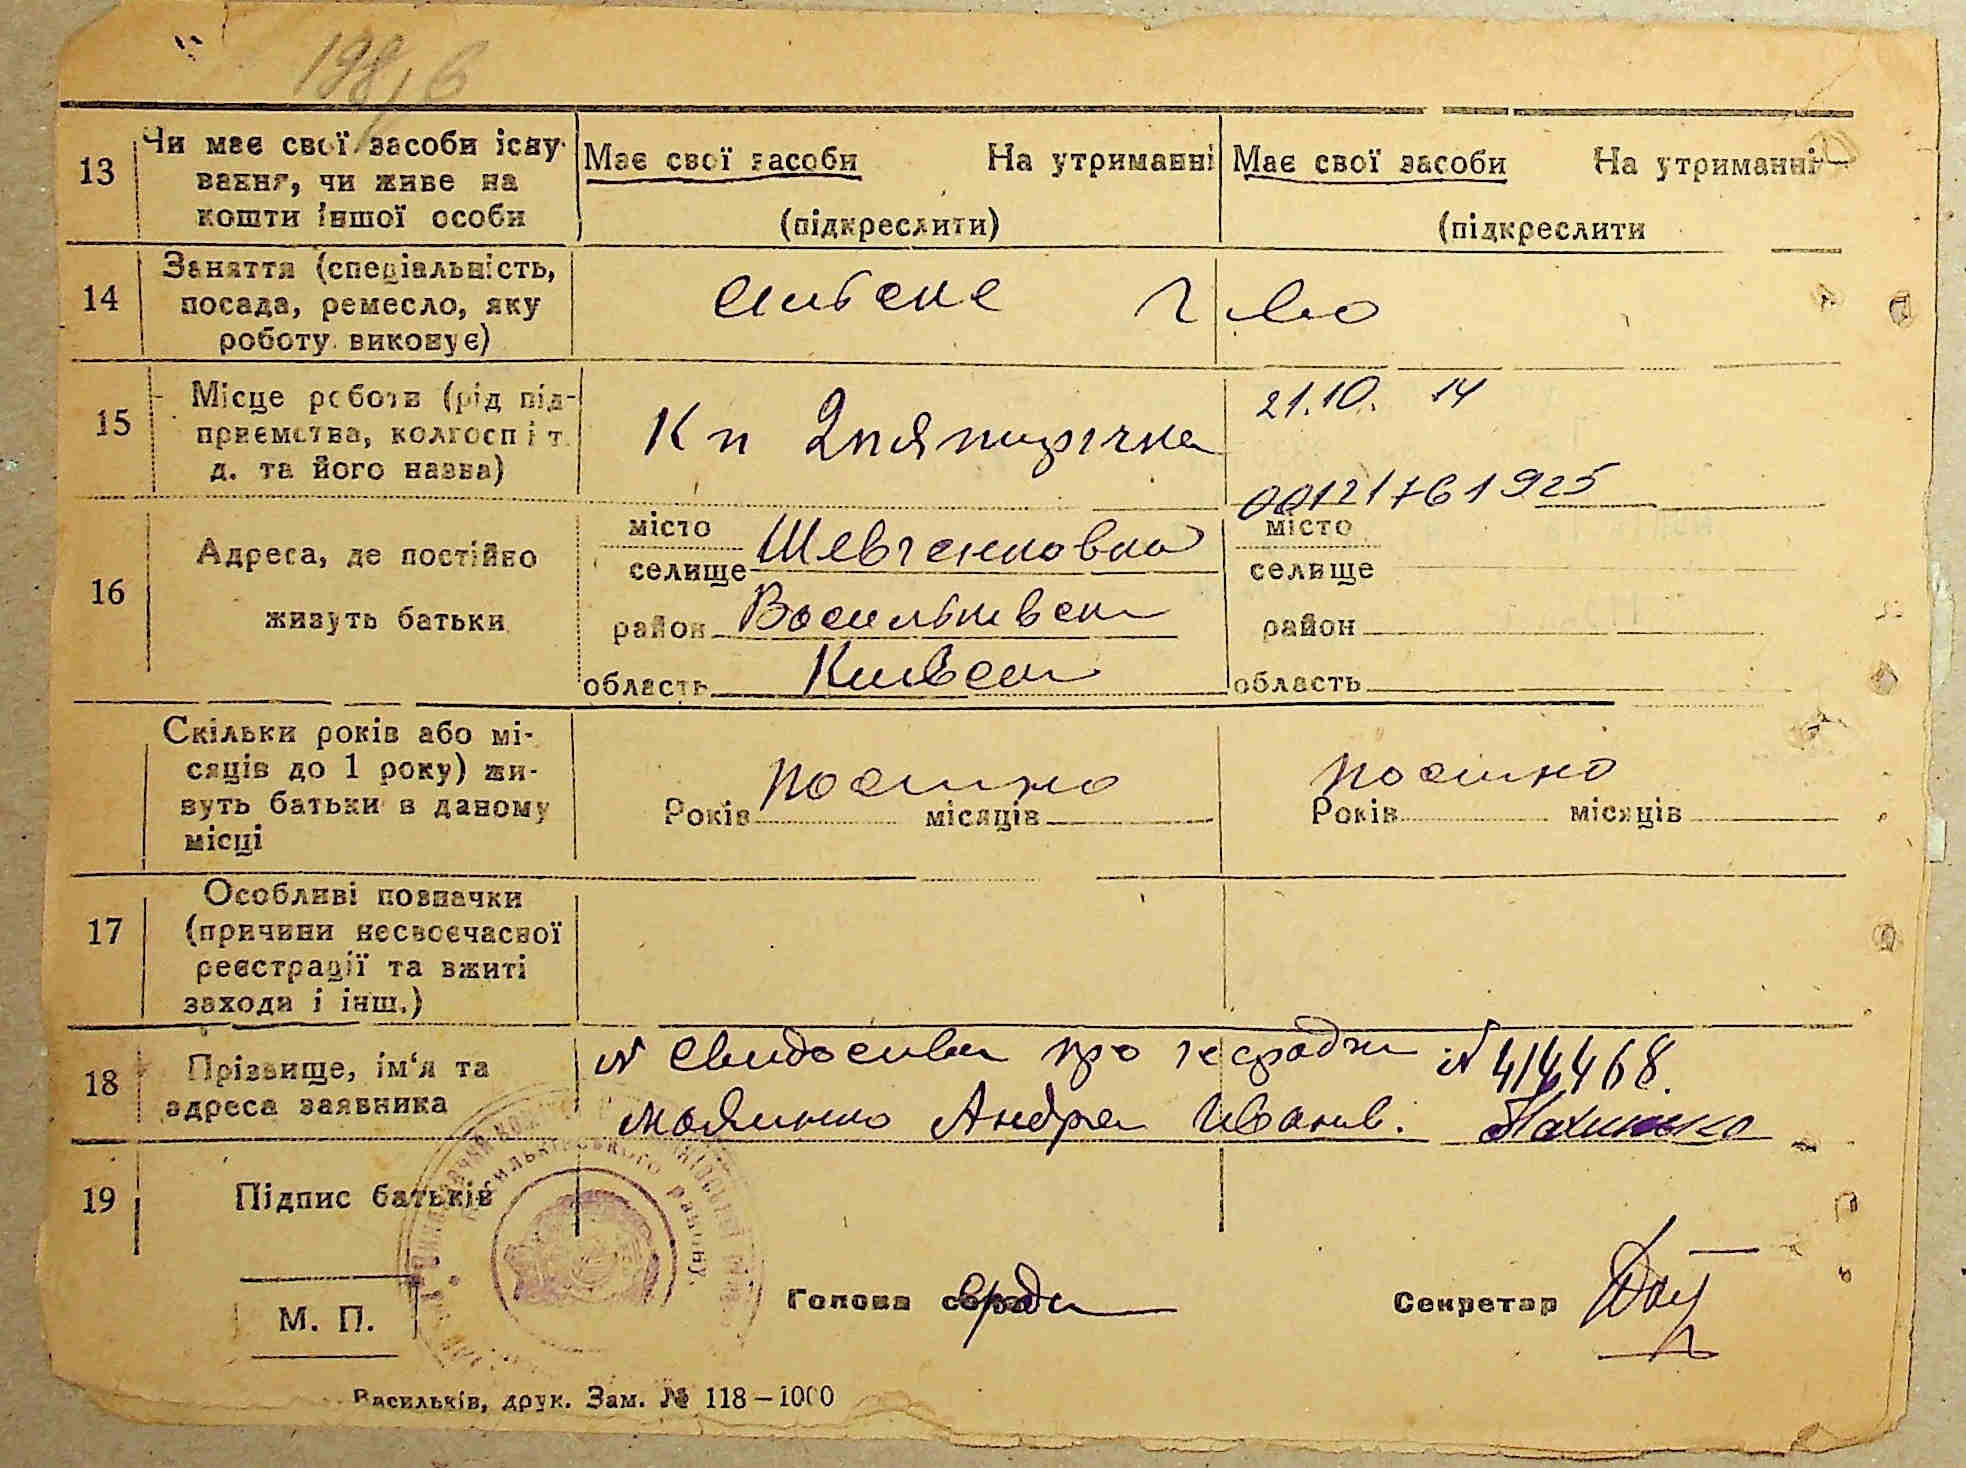 198/6
13 Чи має свої засоби існу- Має свої засоби На утриманні Має свої засоби На утриманні
вання, чи живе на
кошти іншої особи (підкреслити) (підкреслити
Заняття (спеціальність,
14 посада, ремесло, яку
роботу виконує)
Місце роботи (рід під- 21.10. 14
15 приємства, колгосп і т. Кп 2 пятирічка
д. та його назва)
00121761925
місто місто
Адреса, де постійно Шевченковка
селище селище
16
живуть батьки район Васильківськ район
область Київськ область
Скільки років або мі-
сяців до 1 року) жи- постіно постіно
вуть батьки в даному Років місяців Років місяців
місці
Особливі позначки
17 (причини несвоєчасної
реєстрації та вжиті
заходи і інш.)
18 Прізвище, ім‘я та № про №
адреса заявника Андре Иванів.
19 Підпис батьків
Васильківського району.
М. П. Голова Секретар
Васильків, друк. Зам. № 118–1000